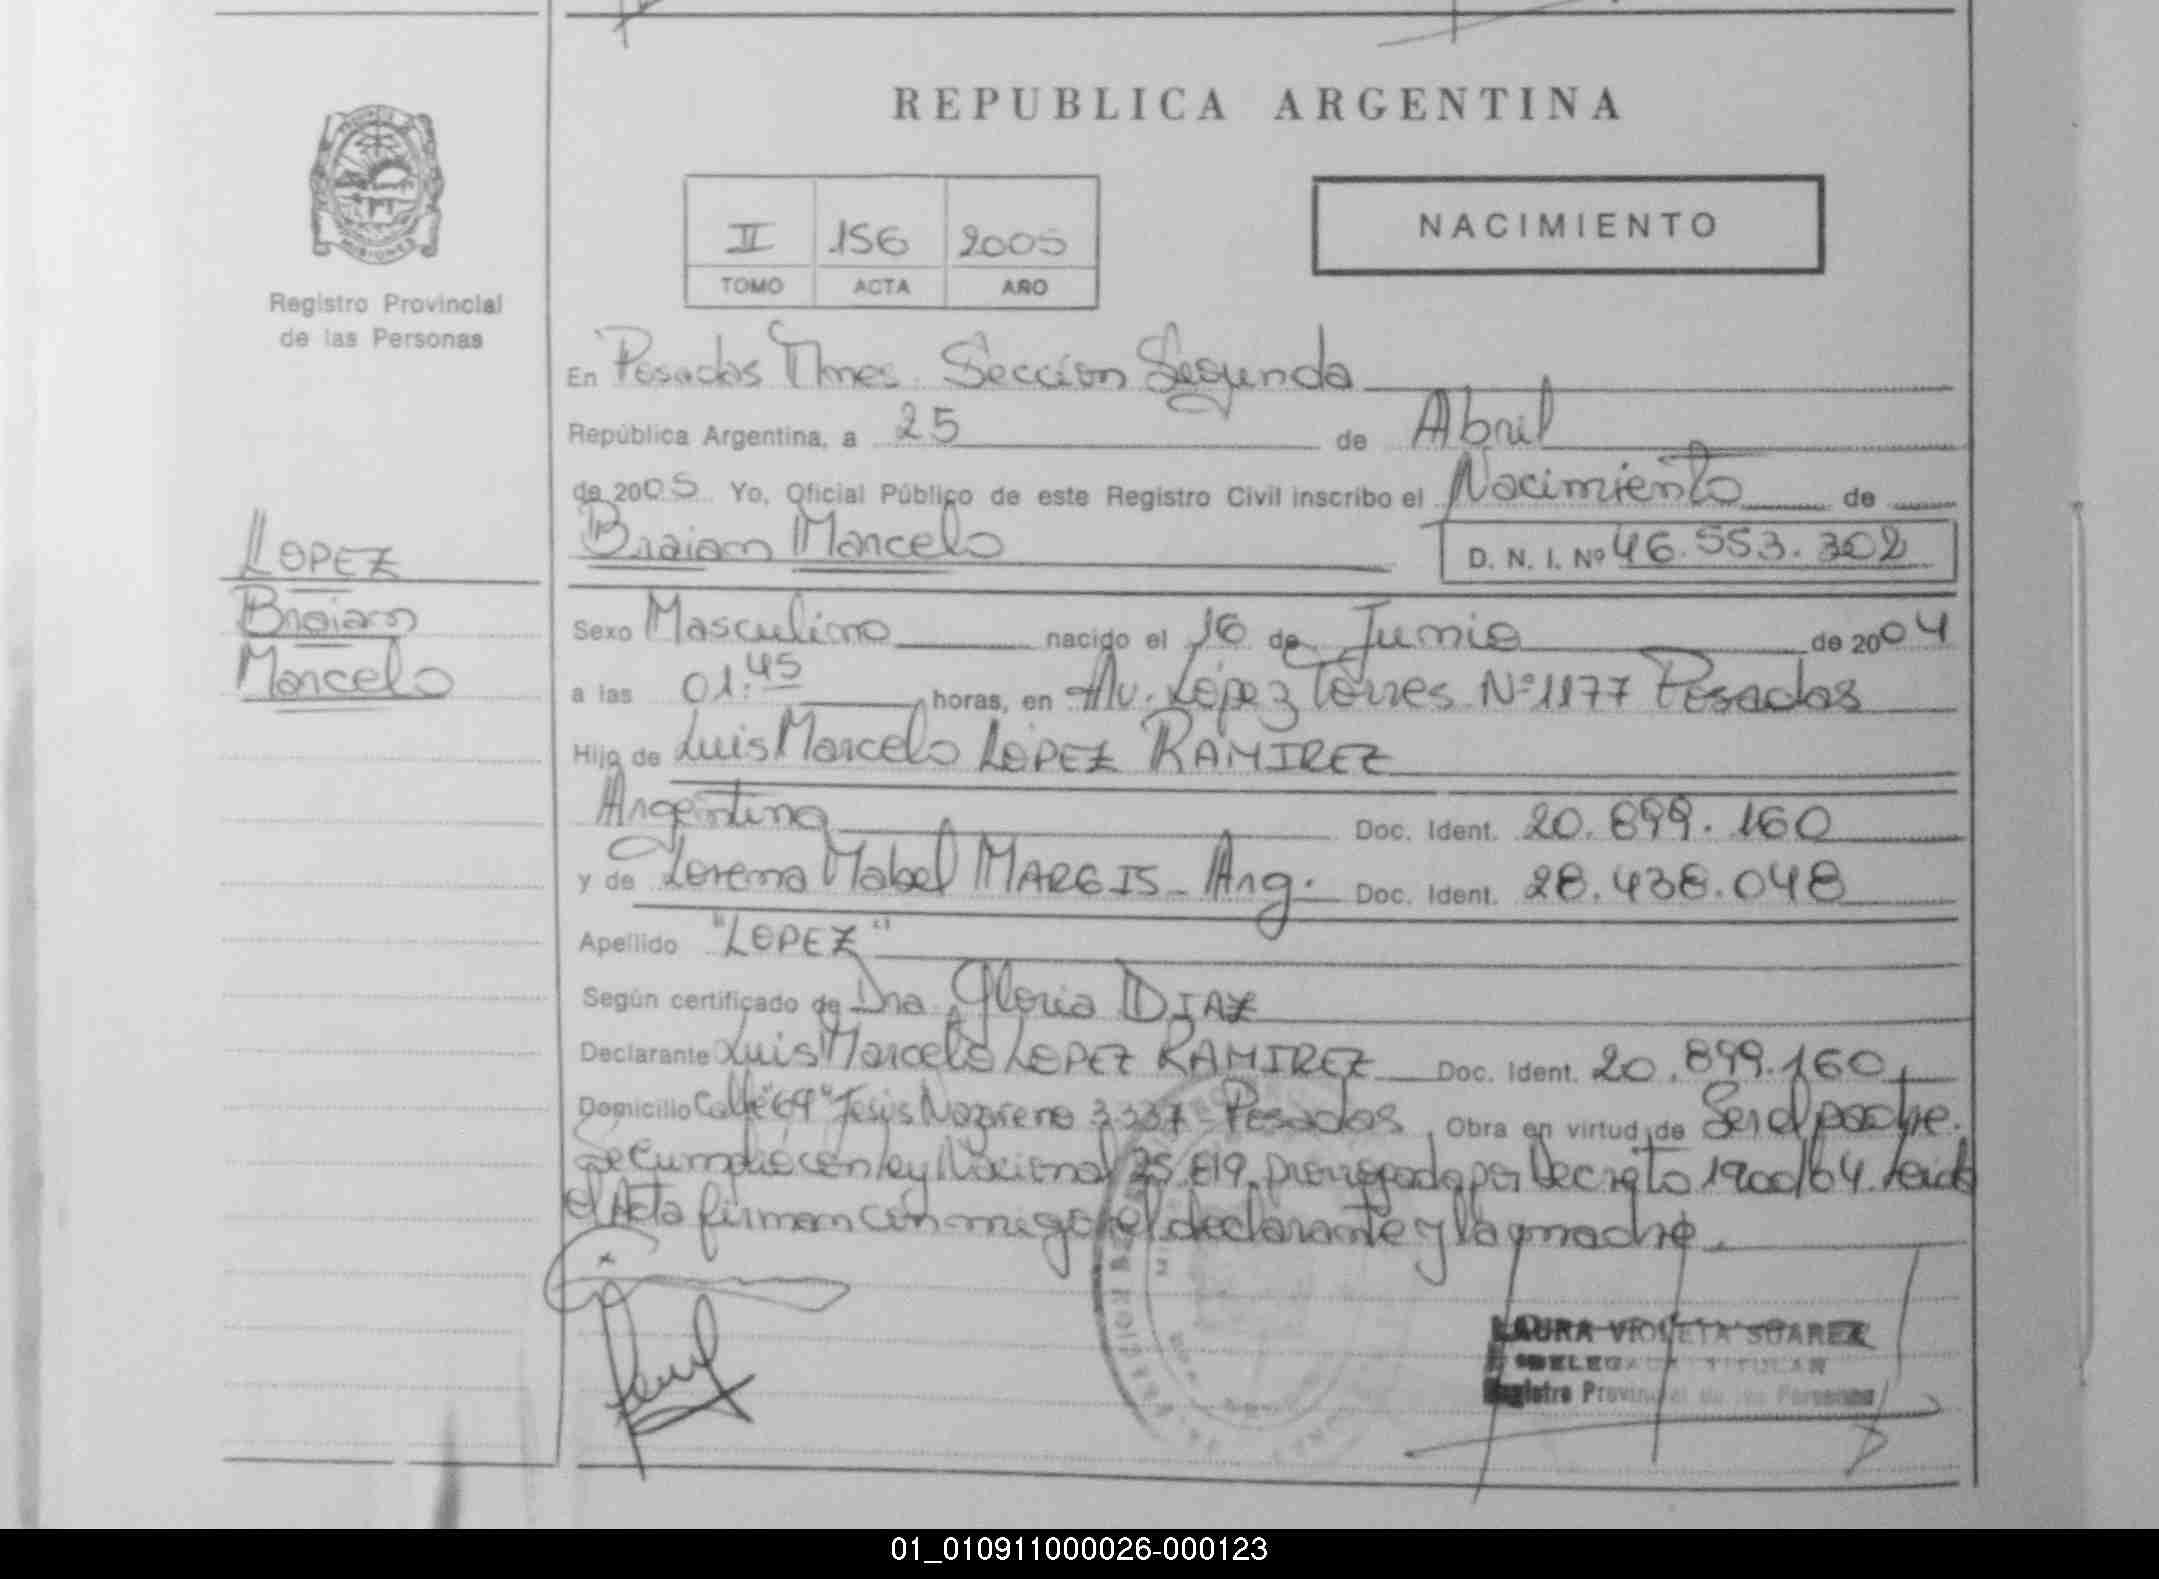 REPUBLICA ARGENTINA
NACIMIENTO
II 156 2005
TOMO ACTA AÑO
Registro Provincial
de las Personas
En Posadas Mnes. Sección Segunda
República Argentina, a 25 de Abril
de 2005 Yo, Oficial Público de este Registro Civil inscribo el Nacimiento de
Braian Marcelo D. N. I. Nº 46.553.302
LOPEZ
Braian
Marcelo
Sexo Masculino nacido el 16 de Junio de 2004
a las 01:45 horas, en Av. López Torres Nº 1177 Posadas
Hijo de Luis Marcelo LOPEZ RAMIREZ
Argentina Doc. Ident. 20.899.160
y de Lorena Mabel MARGIS - Arg. Doc. Ident. 28.438.048
Apellido "LOPEZ"
Según certificado de Dra. Gloria DIAZ
Declarante Luis Marcelo LOPEZ RAMIREZ Doc. Ident. 20.899.160
Domicilio Calle "69" Jesús Nazareno 3337 - Posadas Obra en virtud de Ser el padre.
Se cumplió con ley Nacional 25.819 prorrogada por Decreto 1900/04. Leida
el Acta firman conmigo el declarante y la madre.
LAURA VIOLETA SUAREZ
DELEGADA TITULAR
Registro Provincial de las Personas
01_010911000026-000123